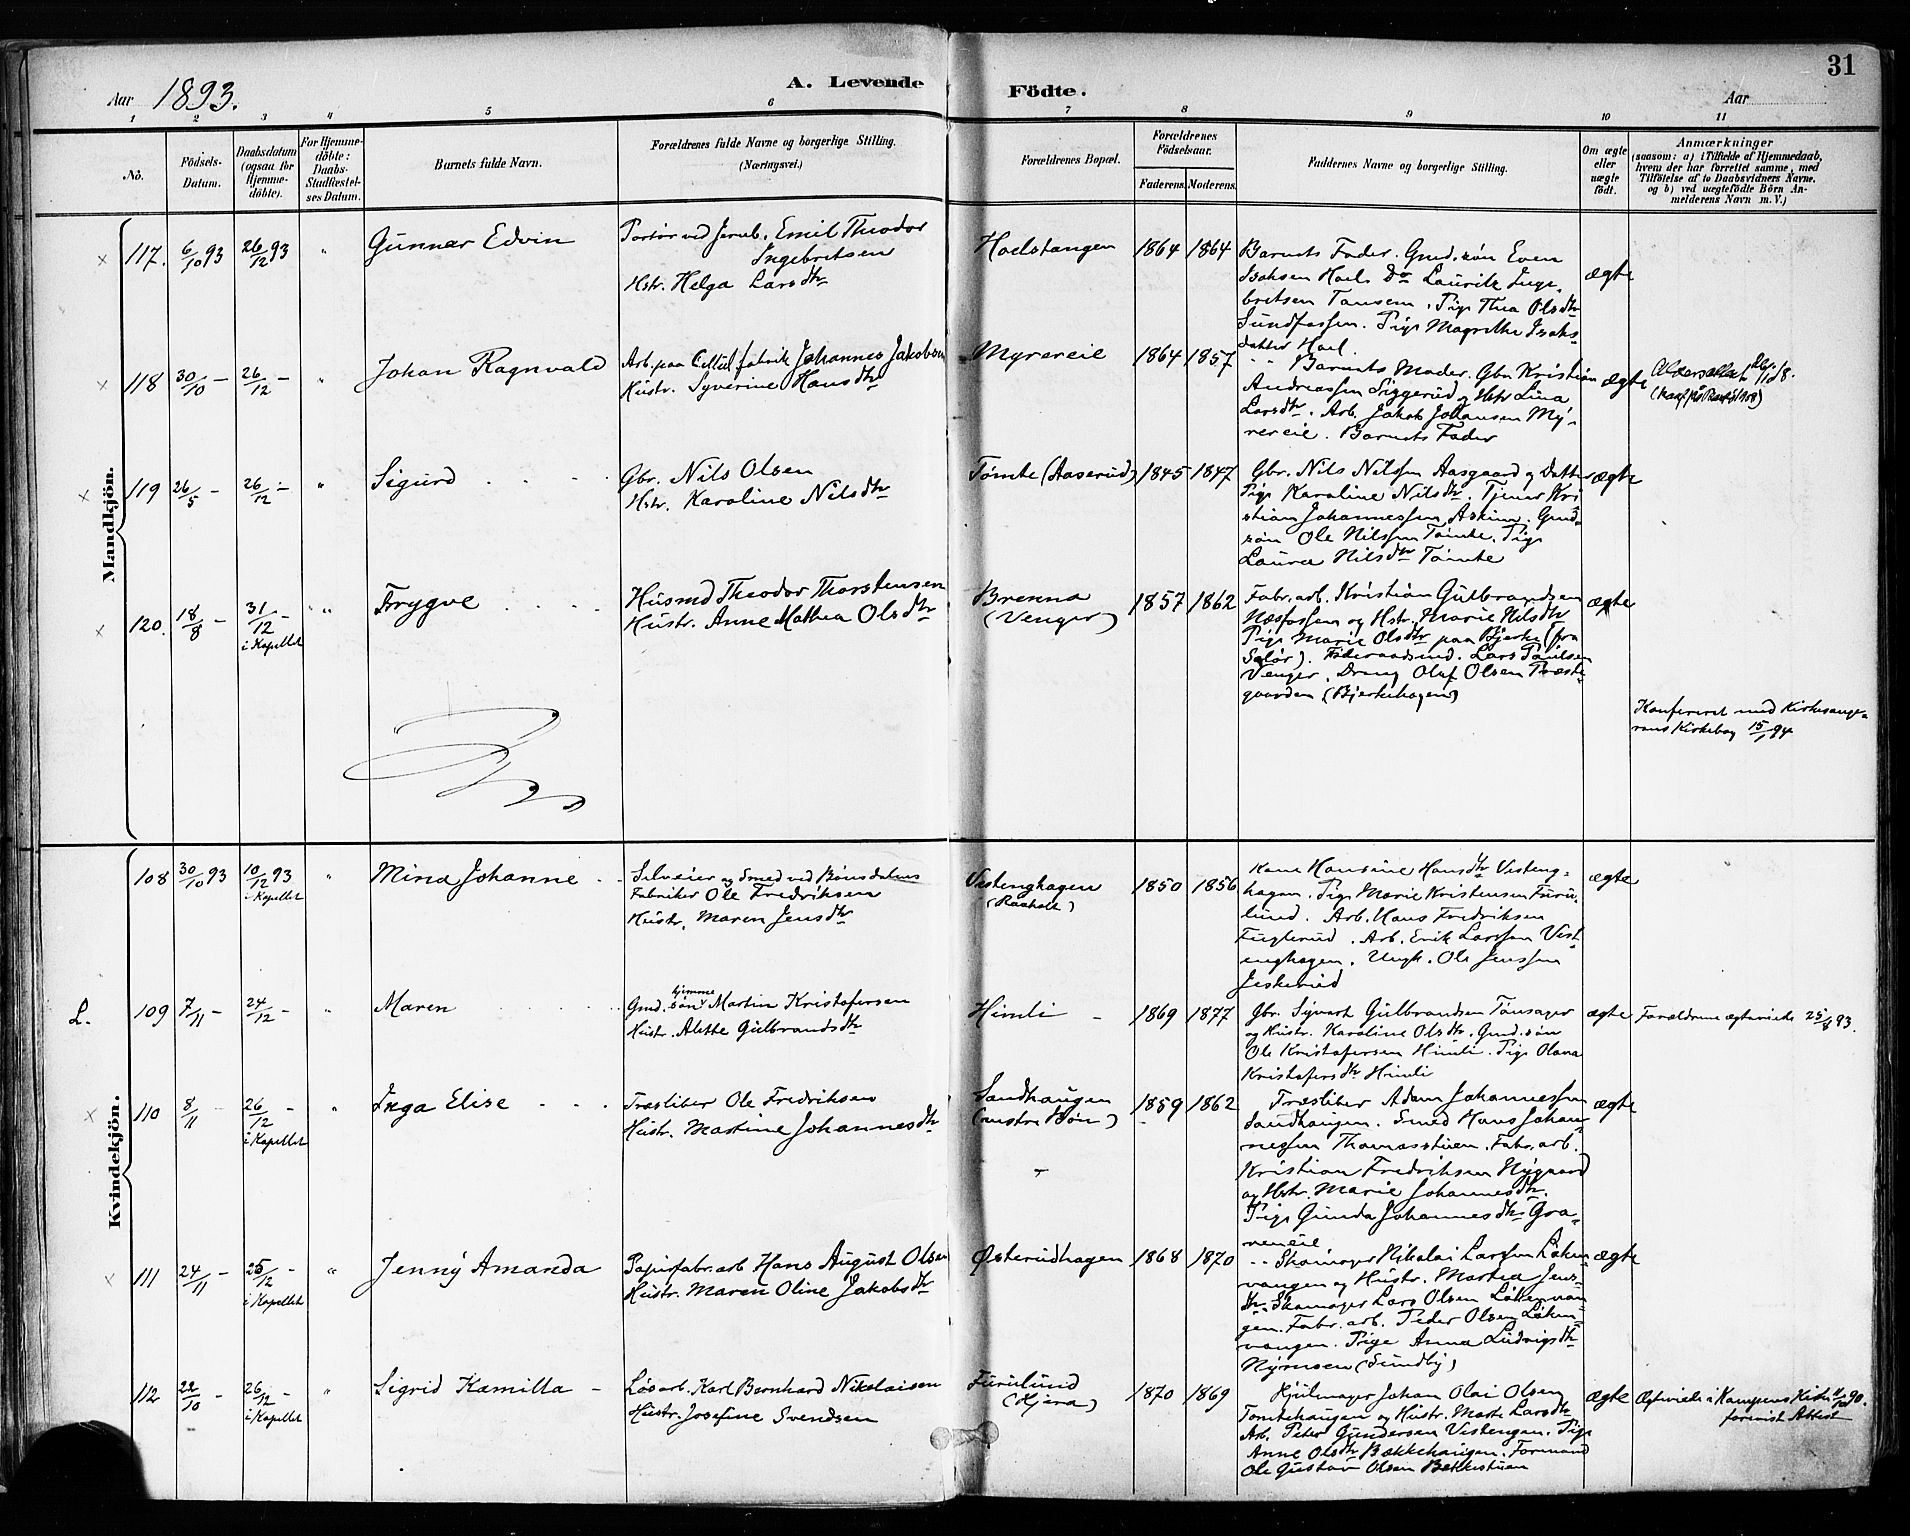 31
Aar 1893.
A. Levende Födte.
Aar
1 2 3 4 5 6 7 8 9 10 11
No.
Födsels-Datum.
Daabsdatum (ogsaa för Hjemme-döbte).
For Hjemme-döbte: Daabs-Stadfæstel-ses Datum.
Barnets fulde Navn.
Forældrenes fulde Navne og borgerlige Stilling. (Næringsvei.)
Forældrenes Bopæl.
Forældrenes Födselsaar.
Faderens. Moderens.
Faddernes Navne og borgerlige Stilling.
Om ægte eller uægte födt.
Anmærkninger
(saasom: a) i Tilfælde af Hjemmedaab,
hvem der har forrettet samme, med
Tilföielse af to Daabsvidners Navne,
og b) ved uægtefödte Börn An-
melderens Navn m. V.)
Mandkjön.
117. 6/10 93 26/12 93 " Gunnar Edvin
Portør ved Jernb. Emil Theodor
Ingebretsen
Hstr. Helga Larsdtr
Hoelstangen 1864 1864
Barnets Fader. Gmd.søn Even
Isaksen Hoel. Do Lauritz Inge-
bretsen Tansem. Pige Thea Olsdtr
Sundfossen. Pige Magrethe Isaks-
datter Hoel.
ægte
118 30/10 - 26/12 - " Johan Ragnvald
Arb. paa Cellul.fabrik Johannes Jakobsen
Hustr. Syverine Hansdtr
Myrereie 1864 1857
" Barnets Moder. Gbr. Kristian
Andreassen Siggerud og Hstr Lina
Larsdtr. Arb. Jakob Johansen My-
rereie. Barnets Fader
ægte
119 26/5 - 26/12 - " Sigurd
Gbr. Nils Olsen
Hstr. Karoline Nilsdtr
Tømte (Aaserud) 1845 1847
Gbr. Nils Nilssen Aasgaard og Datter
Pige Karoline Nilsdtr. Tjener Kri
stian Johannessen Askim. Gmd.
søn Ole Nilssen Tømte. Pige
Laura Nilsdtr Tømte
ægte
120. 18/8 - 31/12 - i Kapellet " Trygve
Husmd Theodor Thorstensen
Hustr. Anne Mathea Olsdtr
Brenna (Venger) 1857 1862
Fabr. arb. Kristian Gulbrandsen
Næsfossen og Hstr. Marie Nilsdtr
Pige Marie Olsdtr paa Bjerke (fra
Solør). Føderaadsmd. Lars Paulsen
Venger. Dreng Olaf Olsen Præste-
gaarden (Bjerkehagen)
ægte
Konfereret med Kirkesange-
rens Kirkebog 15/1 94
Kvindekjön.
108 30/10 93 10/12 93 i Kapellet " Mina Johanne
Selveier og Smed ved Bønsdalens
Fabriker Ole Fredriksen
Hustr. Maren Jensdtr
Vestenghagen (Raaholt) 1850 1856
Kone Hansine Hansdtr Vesteng-
hagen. Pige Marie Kristensen Furu-
lund. Arb. Hans Fredriksen
Fuglerud. Arb. Erik Larssen Vest-
enghagen. Ungk. Ole Jenssen
Jeskerud
ægte
L. 109 7/11 - 24/12 - " Maren
Gmd. hjemme søn Martin Kristofersen
Hustr. Alette Gulbrandsdtr
Himli 1869 1877
Gbr. Syvert Gulbrandsen Tønsager
og Hustr. Karoline Olsdtr. Gmd. søn
Ole Kristofersen Himli. Pige Olava
Kristofersdtr Himli
ægte
Forældrene ægteviede 25/8 93.
110 8/11 - 26/12 - i Kapellet " Inga Elise
Træsliber Ole Fredriksen
Hustr. Martine Johannesdtr
Sandhaugen (nustre Bøn) 1859 1862
Træsliber Adam Johannessen
Sandhaugen. Smed Hans Johan-
nessen Thomasstuen. Fabr. arb.
Kristian Fredriksen Nygaard
og Hstr. Marie Johannesdtr.
Pige Gunda Johannesdtr Gra-
nereie
ægte
111 24/11 - 25/12 - i Kapellet " Jenny Amanda
Papirfabr. arb Hans August Olsen
Hustr. Maren Oline Jakobsdtr
Østerudhagen 1868 1870
" Skomager Nikolai Larssen Løken-
vangen og Hustr. Martea Jens-
dtr. Skomager Lars Olsen Løkenvan-
gen. Fabr. arb. Peder Olsen Løken-
vangen. Pige Anna Ludvigsdtr
Nyrnsen (Sundby)
ægte
112 22/10 - 26/12 - i Kapellet " Sigrid Kamilla
Løsarb. Karl Bernhard Nikolaisen
Hustr. Josefine Svendsen
Furulund (Hjera) 1870 1869
Hjulmager Johan Olai Olsen
Tomtehaugen og Hustr. Marte Larsdtr
Arb. Peter Gundersen Vestengen. Pige
Anne Olsdtr Bækkehaugen. Formand
Ole Gustav Olsen Bekkestuen
ægte
Ægteviede i Kampens Kirke 90.
forevist Attest